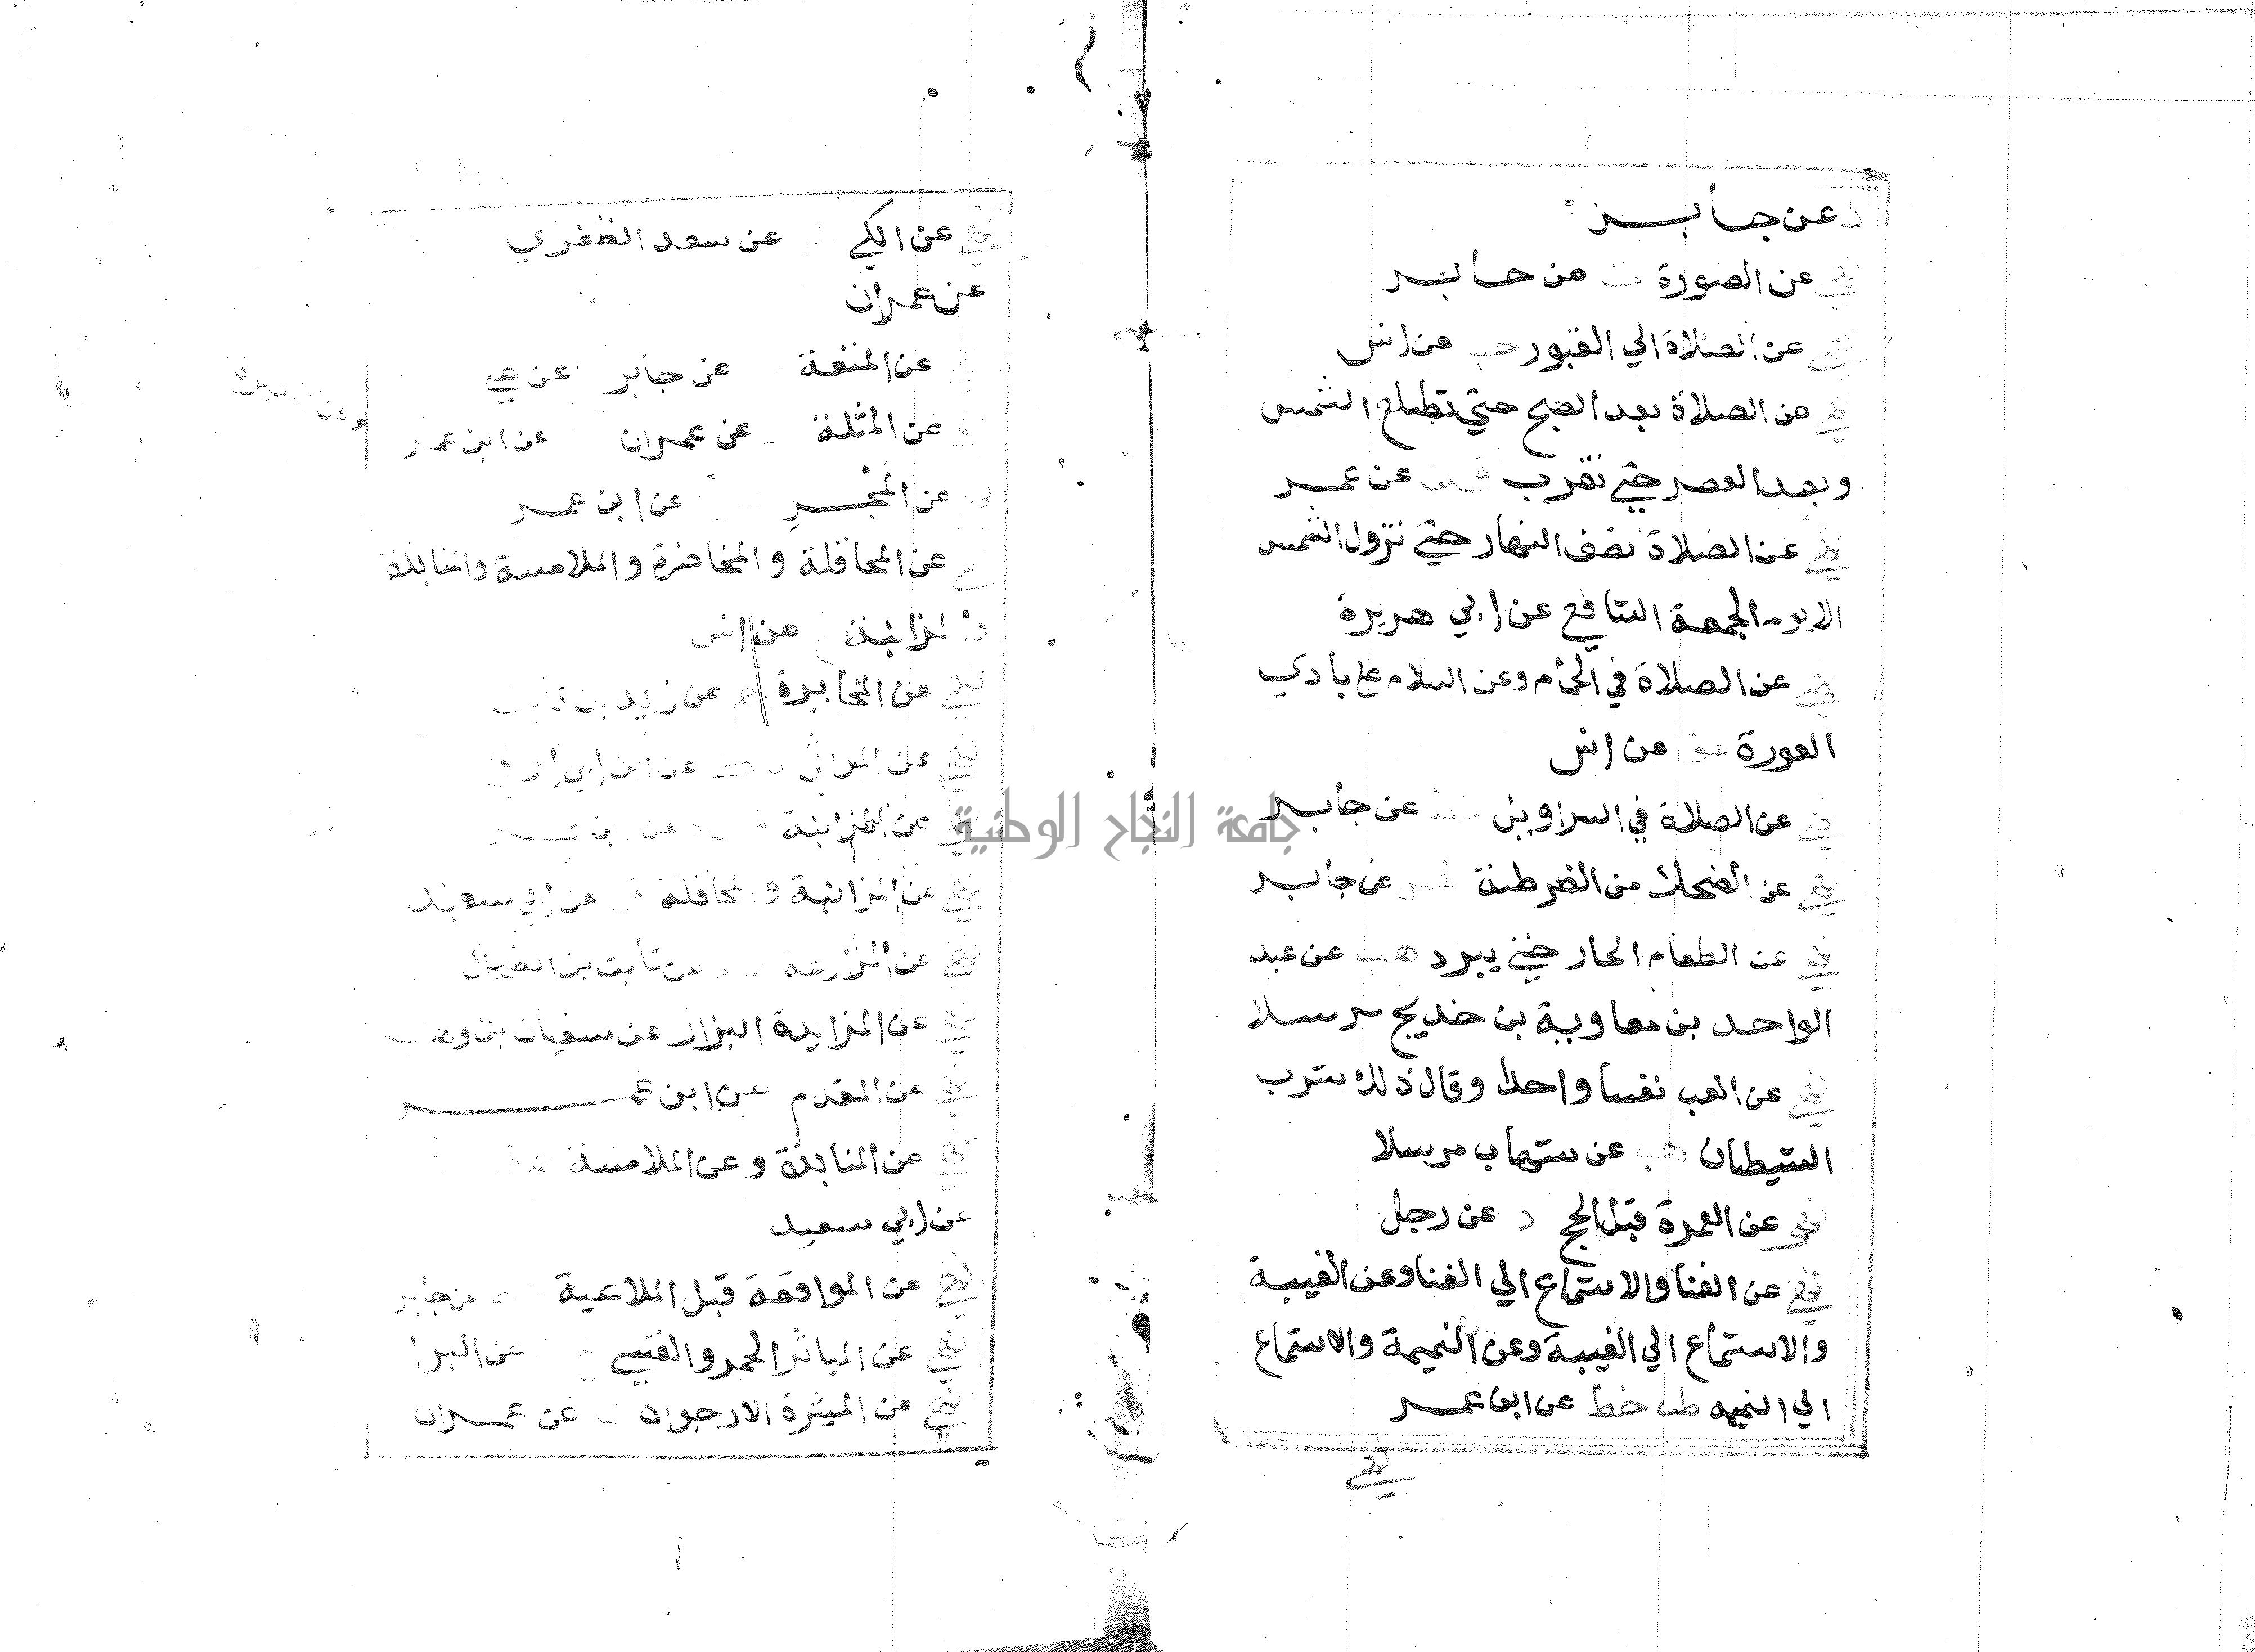 د عن جابر
نهى عن الصورة ت عن جابر
نهى عن الصلاة الي القبور حب عن انس
نهى عن الصلاة بعد الصبح حتي تطلع الشمس
وبعد العصر حتي تغرب ق ن عن عمر
نهى عن الصلاة نصف النهار حتي تزول الشمس
الا يوم الجمعة الشافعي عن ابي هريرة
نهى عن الصلاة في الحمام وعن السلام علي بادي
العورة عق عن انس
نهى عن الصلاة في السراويل خط عن جابر
نهى عن الضحك من الضرطة طس عن جابر
نهى عن الطعام الحار حتي يبرد هب عن عبد
الواحد بن معاوية بن خديج مرسلا
نهى عن العب نفسا واحدا وقال ذلك شرب
الشيطان هب عن شهاب مرسلا
نهى عن العمرة قبل الحج د عن رجل
نهى عن الغنا والاستماع الي الغنا وعن الغيبة
والاستماع الي الغيبة وعن النميمة والاستماع
الي النميمه طب خط عن ابن عمر
نهى
نهى عن الكي عن سعد الظفري
عن عمران
عن المتعة عن جابر عن علي
عن المثلة عن عمران عن ابن عمر
عن المجر عن ابن عمر
عن المحاقلة والمخاضرة والملامسة والمنابذة
والمزابنة عن انس
نهى عن المخابرة حم عن زيد بن ثابت
نهى عن المراثي عن ابن ابي اوفي
نهى عن المزابنة عن ابن عمر
نهى عن المزابنة والمحاقلة عن ابي سعيد
نهى عن المزارعة عن ثابت بن الضحاك
نهى عن المزايدة البزار عن سفيان بن وهب
نهى عن المفدم عن ابن عمر
نهى عن المنابذة وعن الملامسة
عن ابي سعيد
نهى عن المواقعة قبل الملاعبة عن جابر
نهى عن المياثر الحمر والقسي عن البرا
نهى عن الميثرة الارجوان عن عمران
جامعة النجاح الوطنية